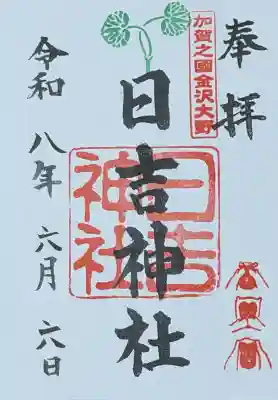 奉拝
加賀之國金沢大野
日吉神社
日吉神社
令和八年六月六日